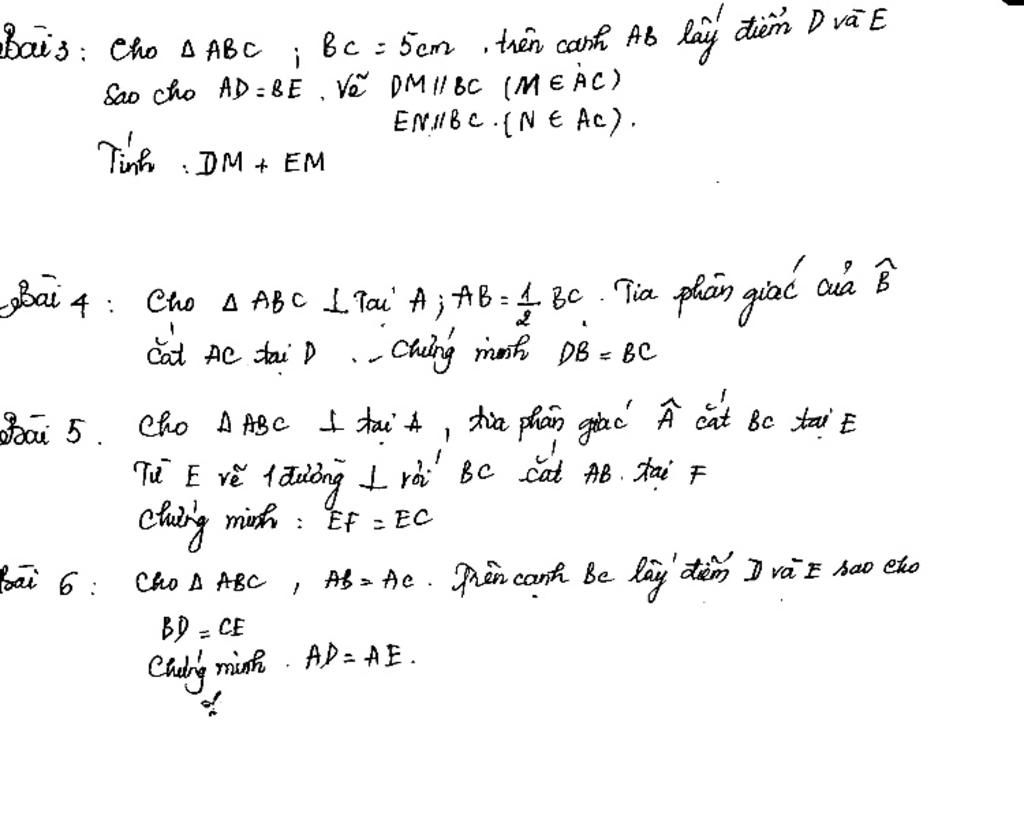 Bài 3 : Cho Δ ABC ; BC = 5cm . trên cạnh AB lấy điểm D và E
Sao cho AD = BE . Vẽ DM // BC (M ∈ AC)
EN // BC . (N ∈ AC) .
Tính : DM + EM
Bài 4 : Cho Δ ABC ⊥ Tại A ; AB = 1/2 BC . Tia phân giác của B̂
cắt AC tại D . - Chứng minh DB = BC
Bài 5 . Cho Δ ABC ⊥ tại A , tia phân giác  cắt BC tại E
Từ E vẽ 1 đường ⊥ với BC cắt AB . tại F
Chứng minh : EF = EC
Bài 6 : Cho Δ ABC , AB = AC . Trên cạnh BC lấy điểm D và E sao cho
BD = CE
Chứng minh . AD = AE .